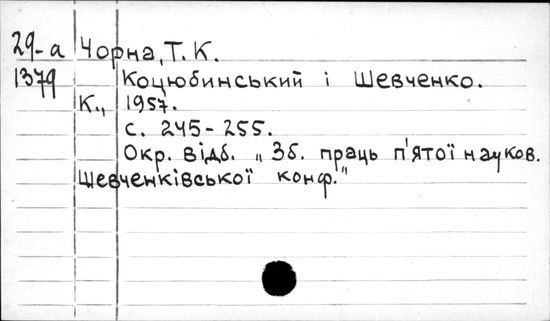 29-а Чорна, Т. К.
1379 Коцюбинський і Шевченко.
К., 1957.
с. 245-255.
Окр. відб. „Зб. праць п'ятої науков.
Шевченківської конф."